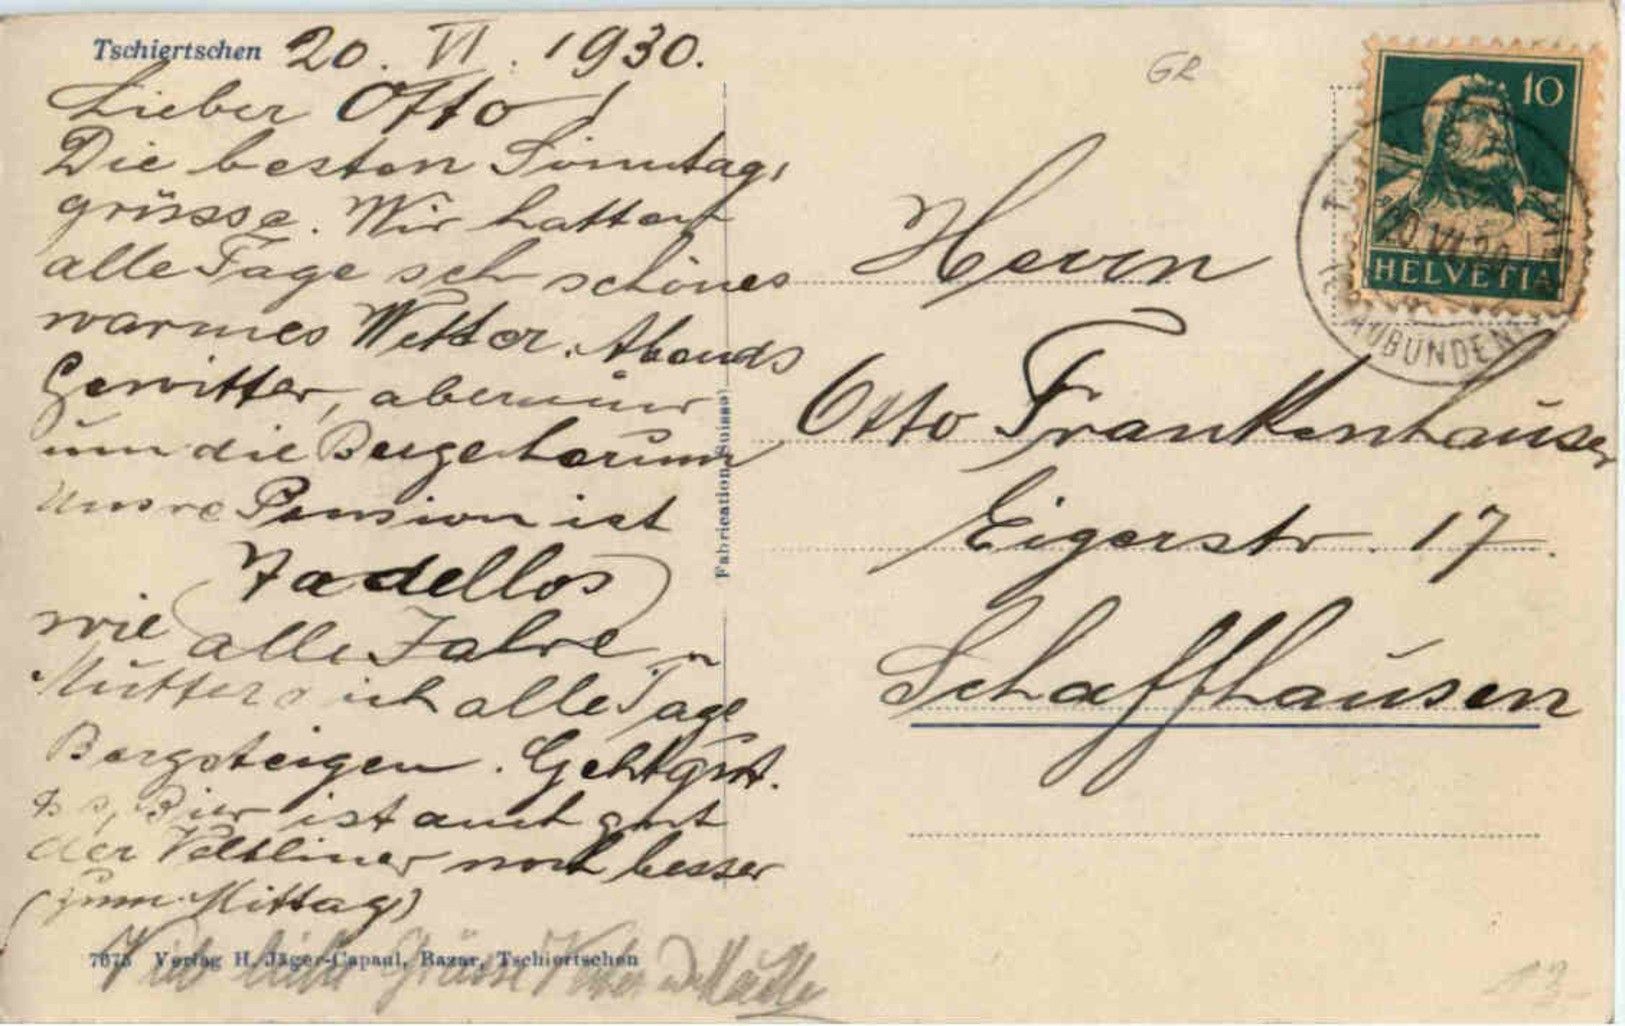 Tschiertschen 20. VI. 1930.
Lieber Otto!
Die besten Sonntags
grüsse. Wir hatten
alle Tage seh schönes
warmes Wetter. Abends
Gewitter, aber nur
um die Berge herum
Unsre Pension ist
Tadellos
wie alle Jahre
Mutter & ich alle Tage
Bergsteigen. Geht gut.
Bier ist auch gut
der Veltliner noch besser
(zum Mittag)
7675 Verlag H. Jäger-Capaul, Bazar, Tschiertschen
Viele liebe Grüsse Vater u Mutter
Fabrication Suisse
GR
10
HELVETIA
20.VI.30
GRAUBÜNDEN
Herrn
Otto Frankenhauser
Eigerstr. 17.
Schaffhausen